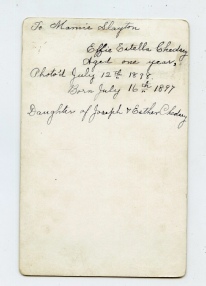 To Mamie Slayton
Effie Estella Chedsy
Aged one year,
Photo'd July 12th 1898.
Born July 16th 1897
Daughter of Joseph & Esther Chedsy